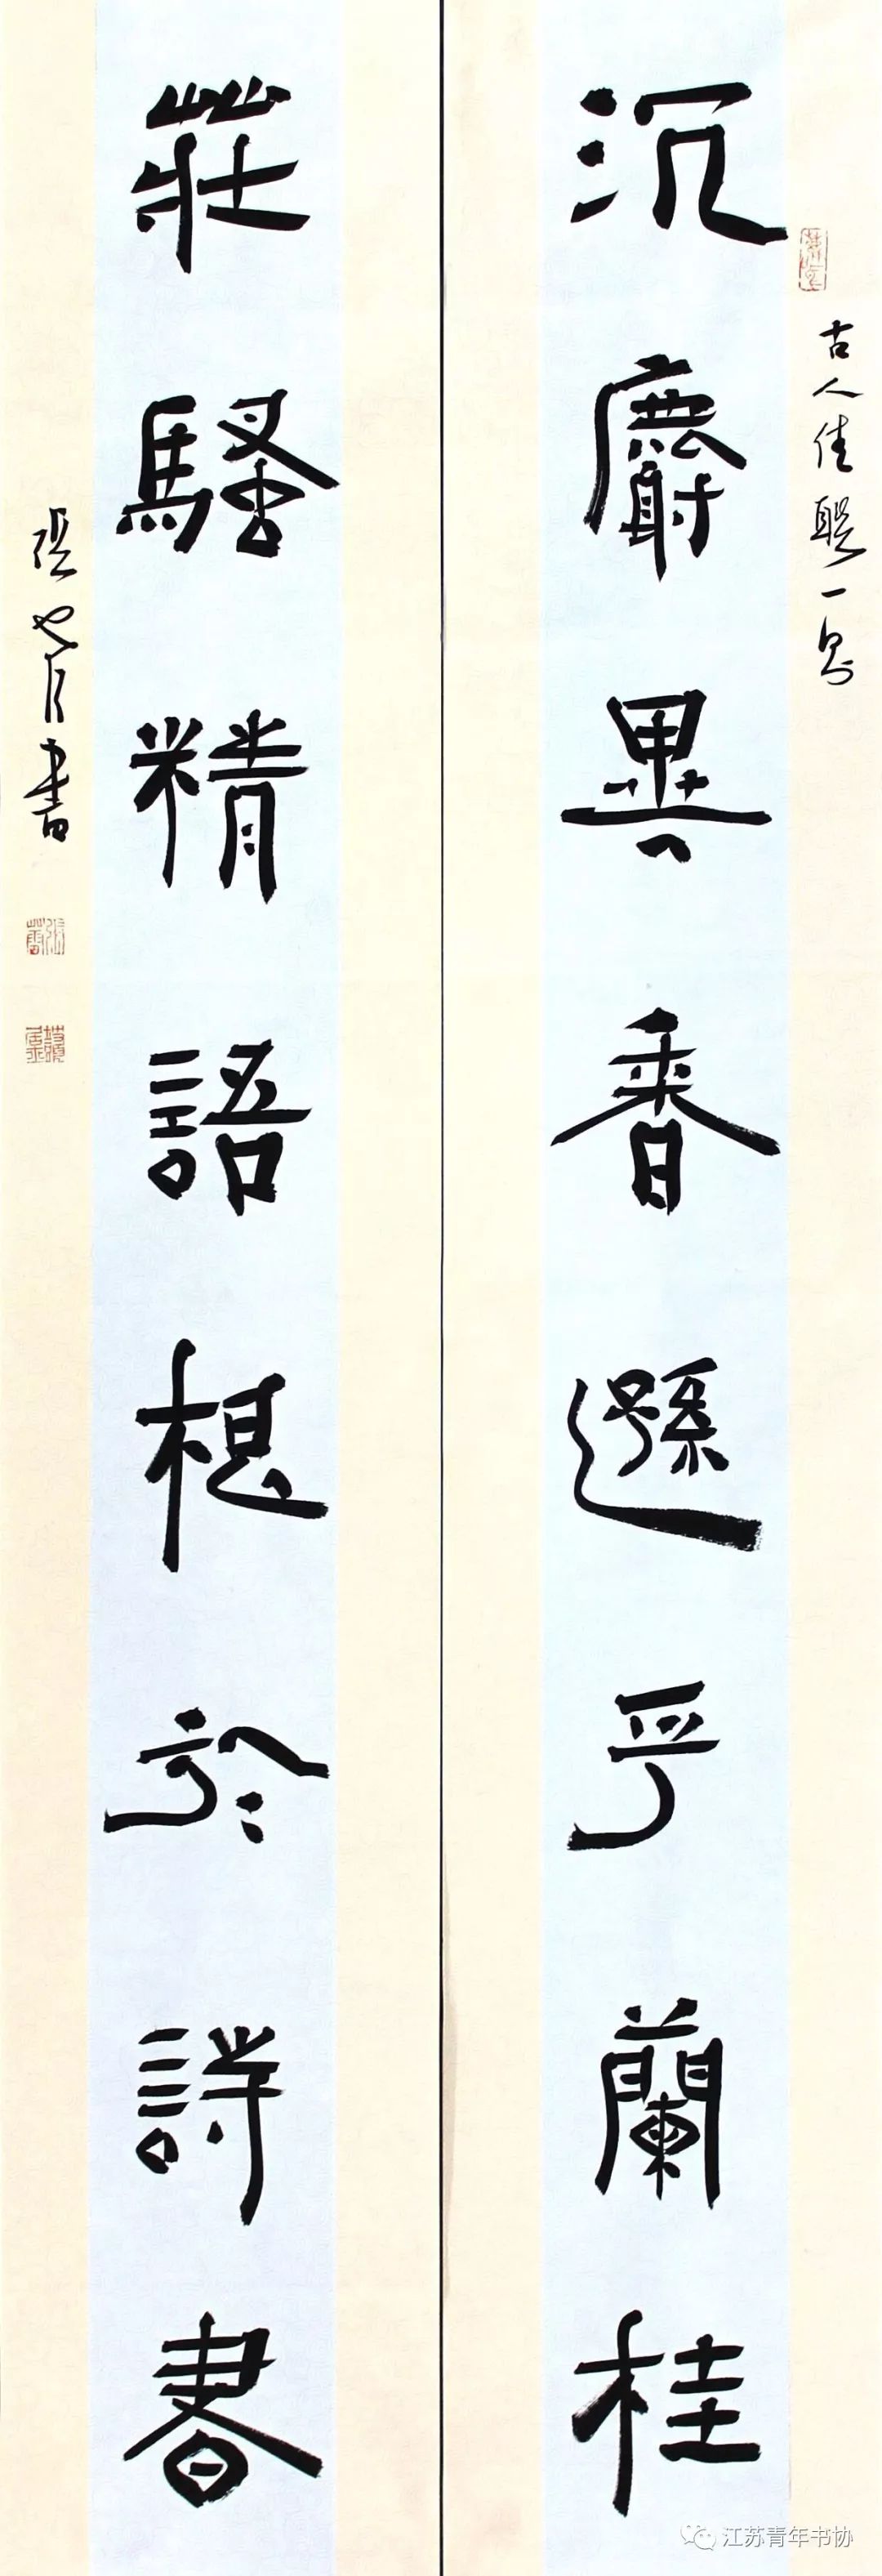 古人佳聯一則
沉麝異香遜乎蘭桂
莊騷精語根於詩書
張書
江苏青年书协